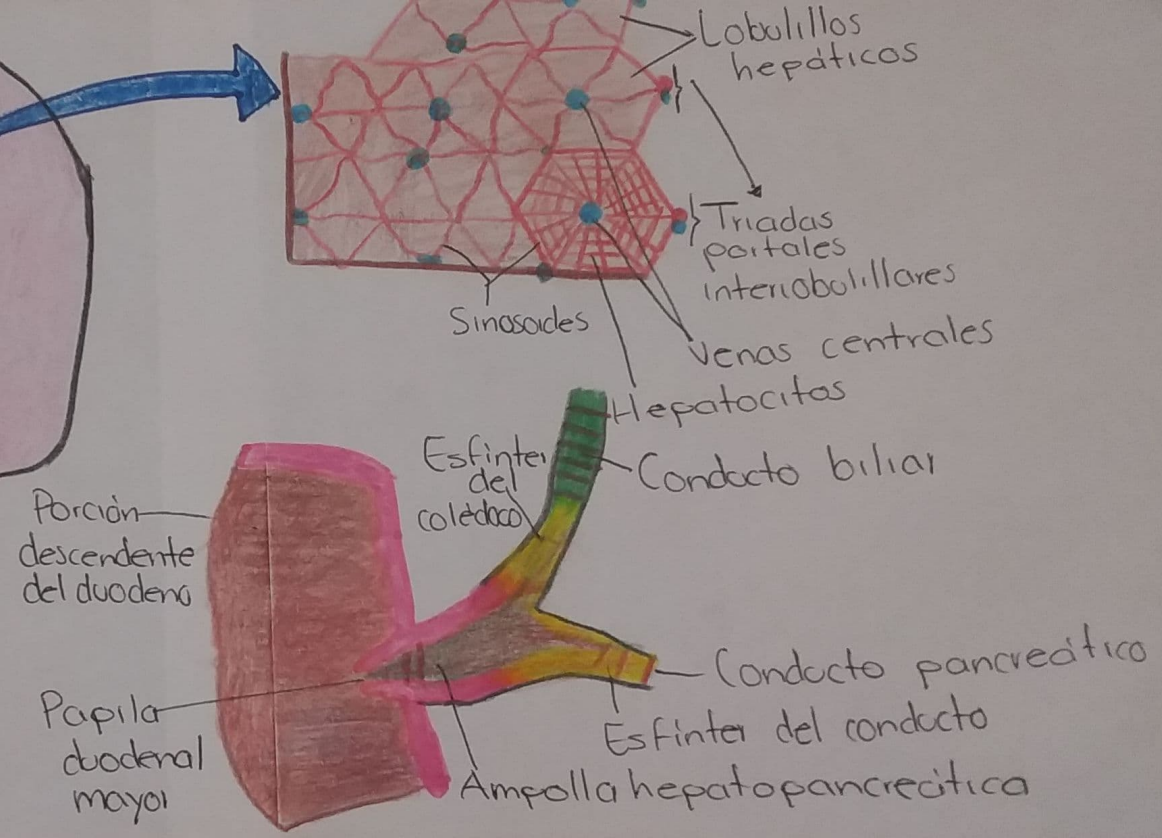 Lobulillos
hepáticos
Triadas
portales
interlobulillares
Sinosoides
Venas centrales
Hepatocitos
Esfinter
del
colédoco
Conducto biliar
Porción
descendente
del duodeno
Conducto pancreático
Papila
duodenal
mayor
Esfinter del conducto
Ampolla hepatopancreática